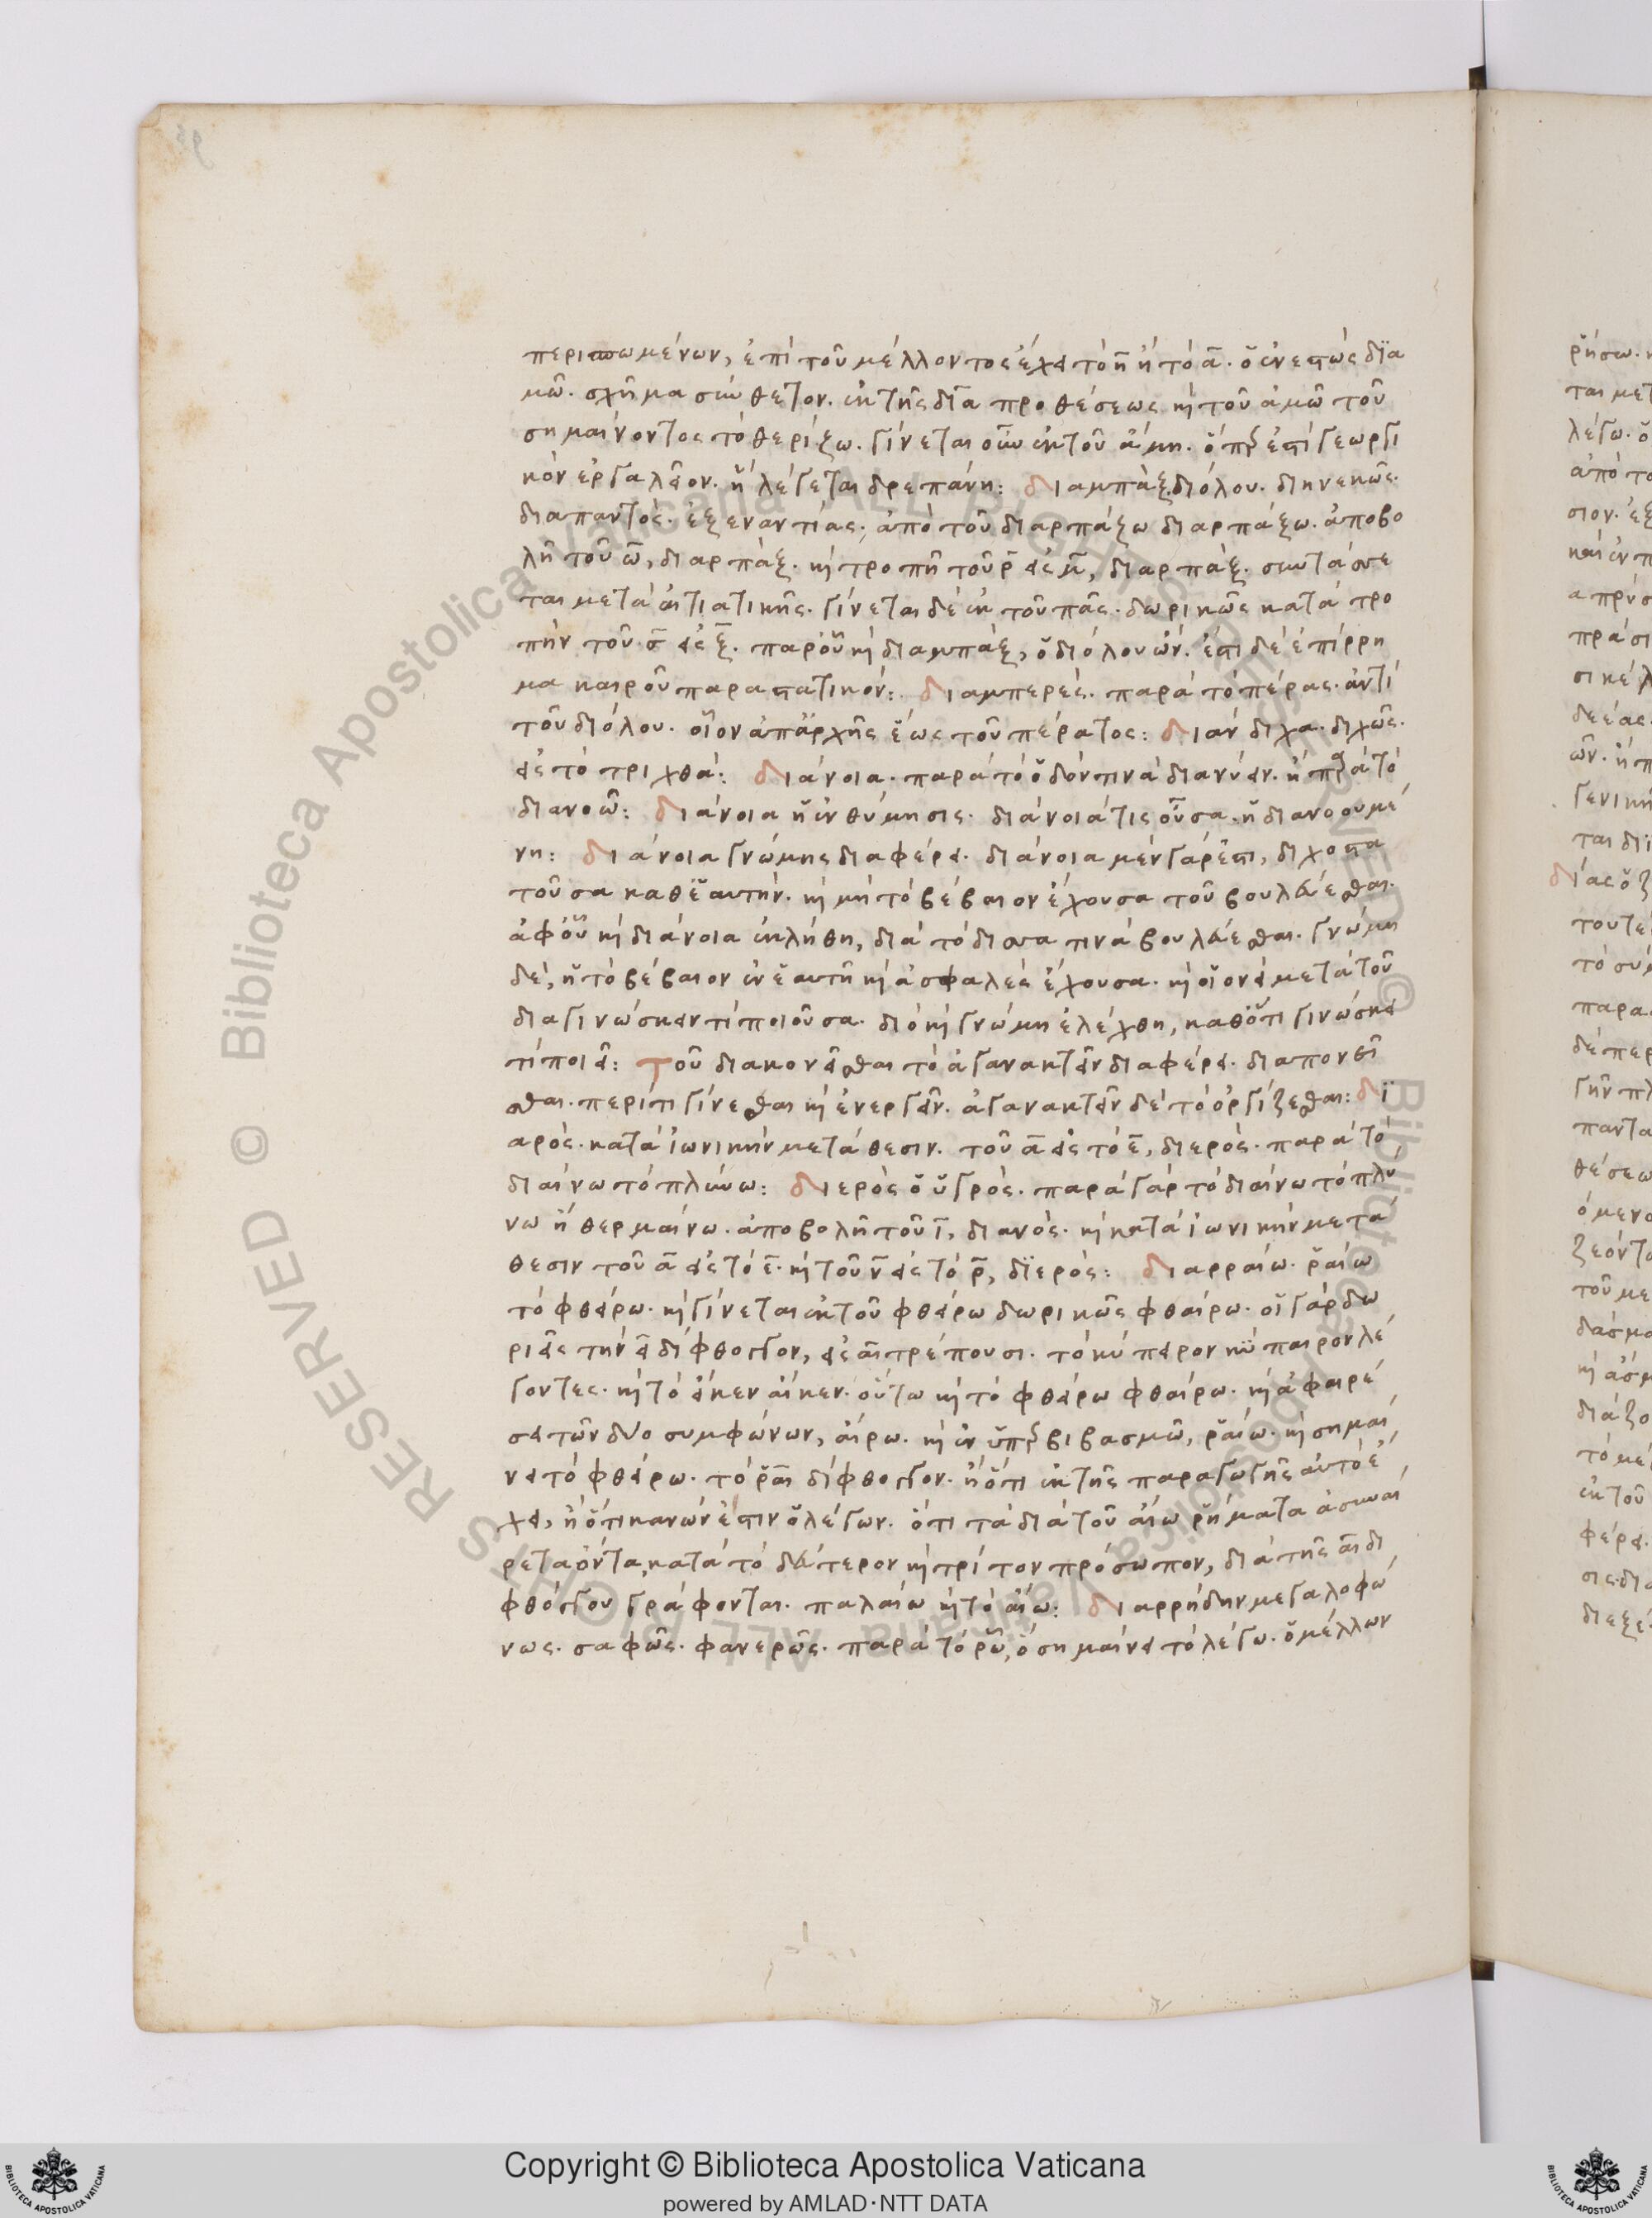 περισπωμένων, ἐπὶ τοῦ μέλλοντος ἔχει τὸ η̄ ἢ τὸ ᾱ. ὁ ἐνεστὼς δια
μῶ. σχῆμα σύνθετον. ἐκ τῆς διὰ προθέσεως καὶ τοῦ ἀμῶ τοῦ
σημαίνοντος τὸ θερίζω. γίνεται οὖν ἐκ τοῦ ἄμη. ὅπερ ἐστὶ γεωργι
κὸν ἐργαλεῖον. ἢ λέγεται δρεπάνη: διαμπάξ. διόλου. διηνεκῶς.
διαπαντός. ἐξεναντίας. ἀπὸ τοῦ διαρπάζω διαρπάξω. ἀποβο
λῇ τοῦ ω̄, διαρπάξ. καὶ τροπῇ τοῦ ρ̄ εἰς μ̄, διαρπάξ. συντάσσε
ται μετὰ αἰτιατικῆς. γίνεται δὲ ἐκ τοῦ πᾶς. δωρικῶς κατὰ τρο
πὴν τοῦ σ̄ εἰς ξ̄. παρ' οὗ καὶ διαμπάξ, ὁ διόλου ὤν. ἔστι δὲ ἐπίρρη
μα καιροῦ παραστατικόν: διαμπερές. παρὰ τὸ πέρας. ἀντὶ
τοῦ διόλου. οἷον ἀπαρχῆς ἕως τοῦ πέρατος: διάνδιχα. διχῶς.
εἰς τὸ τριχθά: διάνοια. παρὰ τὸ ὁδόν τινα διανύειν. ἢ παρὰ τὸ
διανοῶ: διάνοια ἡ ἐνθύμησις. διάνοιά τις οὖσα. ἡ διανοουμέ
νη: διάνοια γνώμης διαφέρει. διάνοια μὲν γάρ ἐστι, διχοστα
τοῦσα καθ' ἑαυτήν. καὶ μὴ τὸ βέβαιον ἔχουσα τοῦ βουλεύεσθαι.
ἀφ' οὗ καὶ διάνοια ἐκλήθη, διὰ τὸ δισσά τινα βουλεύεσθαι. γνώμη
δὲ, ἡ τὸ βέβαιον ἐν ἑαυτῇ καὶ ἀσφαλὲς ἔχουσα. καὶ οἱονεὶ μετὰ τοῦ
διαγινώσκειν τί ποιοῦσα. διὸ καὶ γνώμη ἐλέχθη, καθ' ὅτι γινώσκει
τί ποιεῖ: Τοῦ διακονεῖσθαι τὸ ἀγανακτεῖν διαφέρει. διαπονεῖ
σθαι. περί τι γίνεσθαι καὶ ἐνεργεῖν. ἀγανακτεῖν δὲ τὸ ὀργίζεσθαι: δι
αρός. κατὰ ἰωνικὴν μετάθεσιν. τοῦ ᾱ εἰς τὸ ε̄, διερός. παρὰ τὸ
διαίνω τὸ πλύνω: διερὸς ὁ ὑγρός. παρὰ γὰρ τὸ διαίνω τὸ πλύ
νω ἢ θερμαίνω. ἀποβολῇ τοῦ ῑ, διανός. καὶ κατὰ ἰωνικὴν μετά
θεσιν τοῦ ᾱ εἰς τὸ ε̄. καὶ τοῦ ν̄ εἰς τὸ ρ̄, διερός: διαρραίω. ῥαίω
τὸ φθείρω. καὶ γίνεται ἐκ τοῦ φθείρω δωρικῶς φθαίρω. οἱ γὰρ δω
ριεῖς τὴν ει δίφθογγον, εἰς αι τρέπουσι. τὸ κύπειρον κύπαιρον λέ
γοντες. καὶ τὸ εἴκεν αἴκεν. οὕτω καὶ τὸ φθείρω φθαίρω. καὶ ἀφαιρέ
σει τῶν δύο συμφώνων, αἴρω. καὶ ἐν ὑπερβιβασμῶ, ῥαίω. καὶ σημαί
νει τὸ φθείρω. τὸ ραι δίφθογγον. ἢ ὅτι ἐκ τῆς παραγωγῆς αὐτὸ ἔ
χει, ἢ ὅτι κανών ἐστιν ὁ λέγων. ὅτι τὰ διὰ τοῦ αιω ῥήματα ἀσυναί
ρετα ὄντα, κατὰ τὸ δεύτερον καὶ τρίτον πρόσωπον, διὰ τῆς αι δι
φθόγγου γράφονται. παλαίω καὶ τὸ αἴω: διαρρήδην μεγαλοφώ
νως. σαφῶς. φανερῶς. παρὰ τὸ ῥῶ, ὃ σημαίνει τὸ λέγω. ὁ μέλλων
© Biblioteca Apostolica Vaticana ALL RIGHTS RESERVED
Copyright © Biblioteca Apostolica Vaticana
powered by AMLAD·NTT DATA
BIBLIOTECA APOSTOLICA VATICANA
BIBLIOTECA APOSTOLICA VATICANA